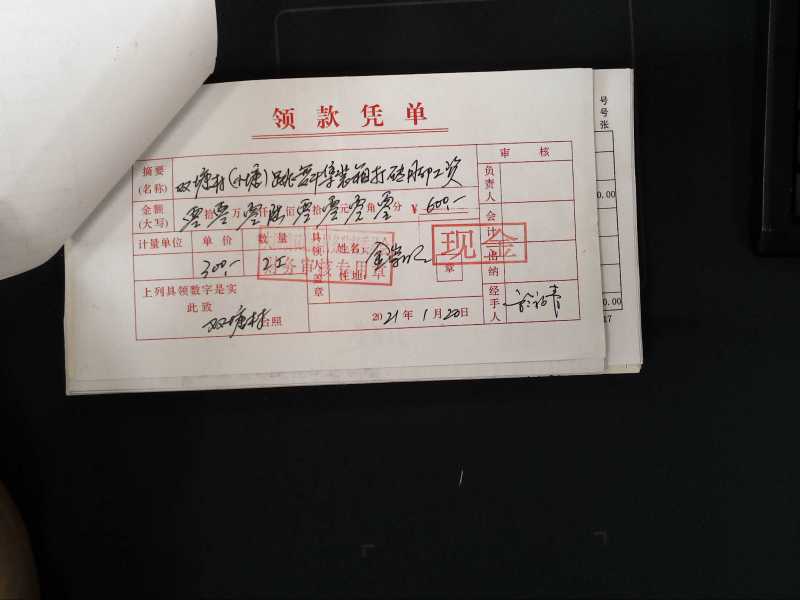 领款凭单
审核
摘要(名称) 双塘村(小塘)跳 集装箱打砖脚工资
金额(大写) 零拾零万零仟陆佰零拾零元零角零分 ￥600.-
计量单位 单价 数量 具领 盖章 姓名 现金
300.- 2工 财务审核专用章 章
上列具领数字是实
此致
双塘村 台照
2021年1月20日
负责人
会计
出纳
经手人
号
号
张
0.00
0.00
17